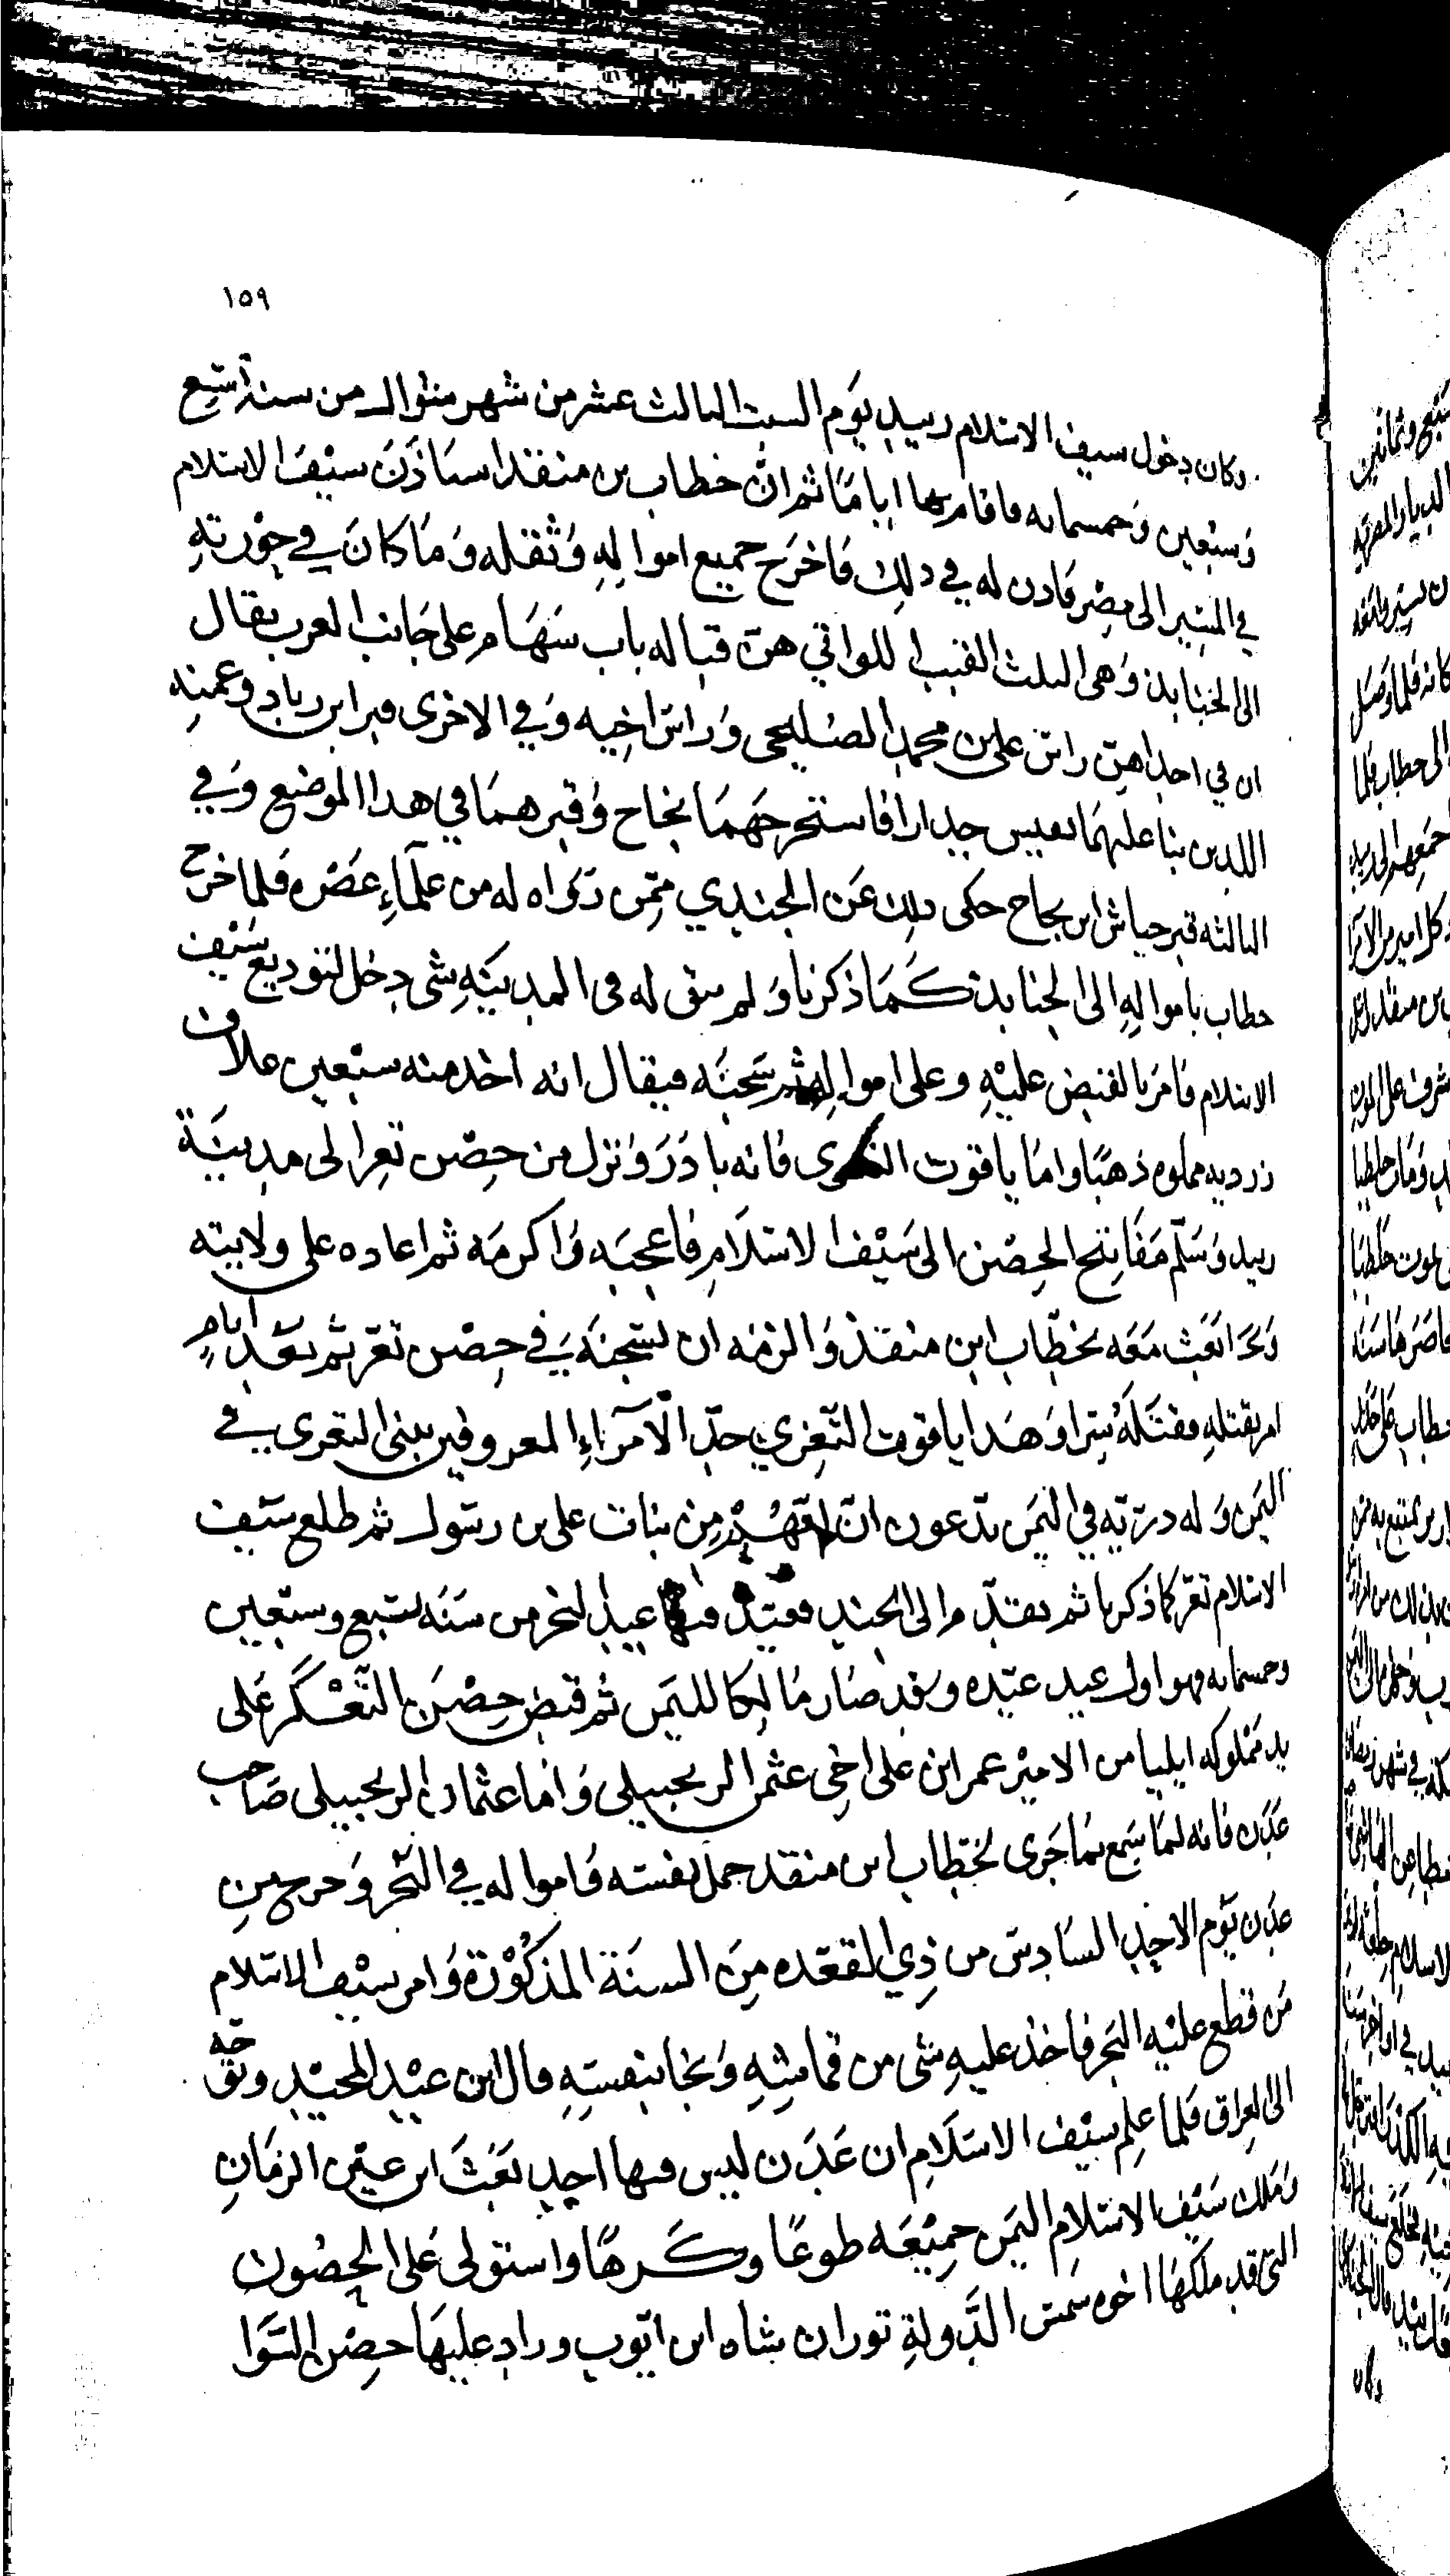 ١٥٩
وكان دخول سيف الاسلام زبيد يوم السبت الثالث عشر من شهر شوال من سنة تسع
وسبعين وخمسمايه فاقام بها اياما ثم ان خطاب بن منقذ استاذن سيف الاسلام
في المسير الى مصر فاذن له في ذلك فاخرج جميع امواله وثقله وما كان في حوزته
الى الجنابذ وهى الثلث القبب اللواتي هن قباله باب سهام على جانب الغرب يقال
ان في احداهن راس علي بن محمد الصليحى وراس اخيه وفي الاخرى قبر ابن زياد وعمته
اللذين بنا عليهما نفيس جدارا فاستخرجهما نجاح وقبرهما في هذا الموضع وفي
الثالثه قبر جياش ابن نجاح حكى ذلك عن الجندي ممن رواه له من علماء عصره فلما خرج
خطاب بامواله الى الجنابذ كما ذكرنا ولم يبق له فى المدينه شى دخل لتوديع سيف
الاسلام فامر بالقبض عليه وعلى امواله ثم سجنه فيقال انه اخذ منه سبعين غلاف
زرديه مملوه ذهبا واما ياقوت التعزى فانه بادر ونزل من حصن تعز الى مدينة
زبيد وسلم مفاتيح الحصن الى سيف الاسلام فاعجبه واكرمه ثم اعاده على ولايته
وبعث معه بخطاب ابن منقذ والزمه ان يسجنه في حصن تعز ثم بعد ايام
امر بقتله فقتله سرا وهذا ياقوت التعزي جد الامراء المعروفين ببنى التعزى في
اليمن وله ذريه في اليمن يدعون ان امهم من بنات على بن رسول ثم طلع سيف
الاسلام تعز كما ذكرنا ثم تقدم الى الجند فعيد فيها عيد النحر من سنه تسع وسبعين
وخمسمايه فهو اول عيد عيده وقد صار مالكا لليمن ثم قبض حصن التعكر على
يد مملوكه ايليا من الامير عمر ابن على اخي عثمن الزنجبيلي واما عثمان الزنجبيلى صاحب
عدن فانه لما سمع بما جرى لخطاب ابن منقذ حمل نفسه وامواله في البحر وخرج من
عدن يوم الاحد السادس من ذي القعده من السنة المذكورة وامر سيف الاسلام
من قطع عليه البحر فاخذ عليه شى من قماشه ونجا بنفسه قال ابن عبد المجيد وتوجه
الى العراق فلما علم سيف الاسلام ان عدن ليس فيها احد بعث ابن عين الزمان
وملك سيف الاسلام اليمن جميعه طوعا وكرها واستولى على الحصون
التي قد ملكها اخوه شمس الدولة توران شاه ابن ايوب وزاد عليها حصن السوا